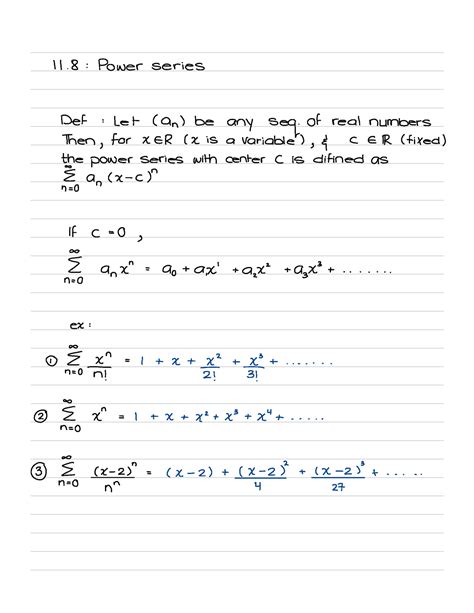 11.8 : Power series
Def : Let (an) be any seq. of real numbers
Then, for x∈R (x is a variable), & c ∈ R (fixed)
the power series with center c is difined as
∞
Σ an (x-c)ⁿ
n=0
If c = 0 ,
∞
Σ anxⁿ = a₀ + ax¹ + a₂x² + a₃x³ + .......
n=0
ex :
① ∞Σn=0 xⁿ/n! = 1 + x + x²/2! + x³/3! + .......
② ∞Σn=0 xⁿ = 1 + x + x² + x³ + x⁴ + .....
③ ∞Σn=0 (x-2)ⁿ/nⁿ = (x-2) + (x-2)²/4 + (x-2)³/27 + .....